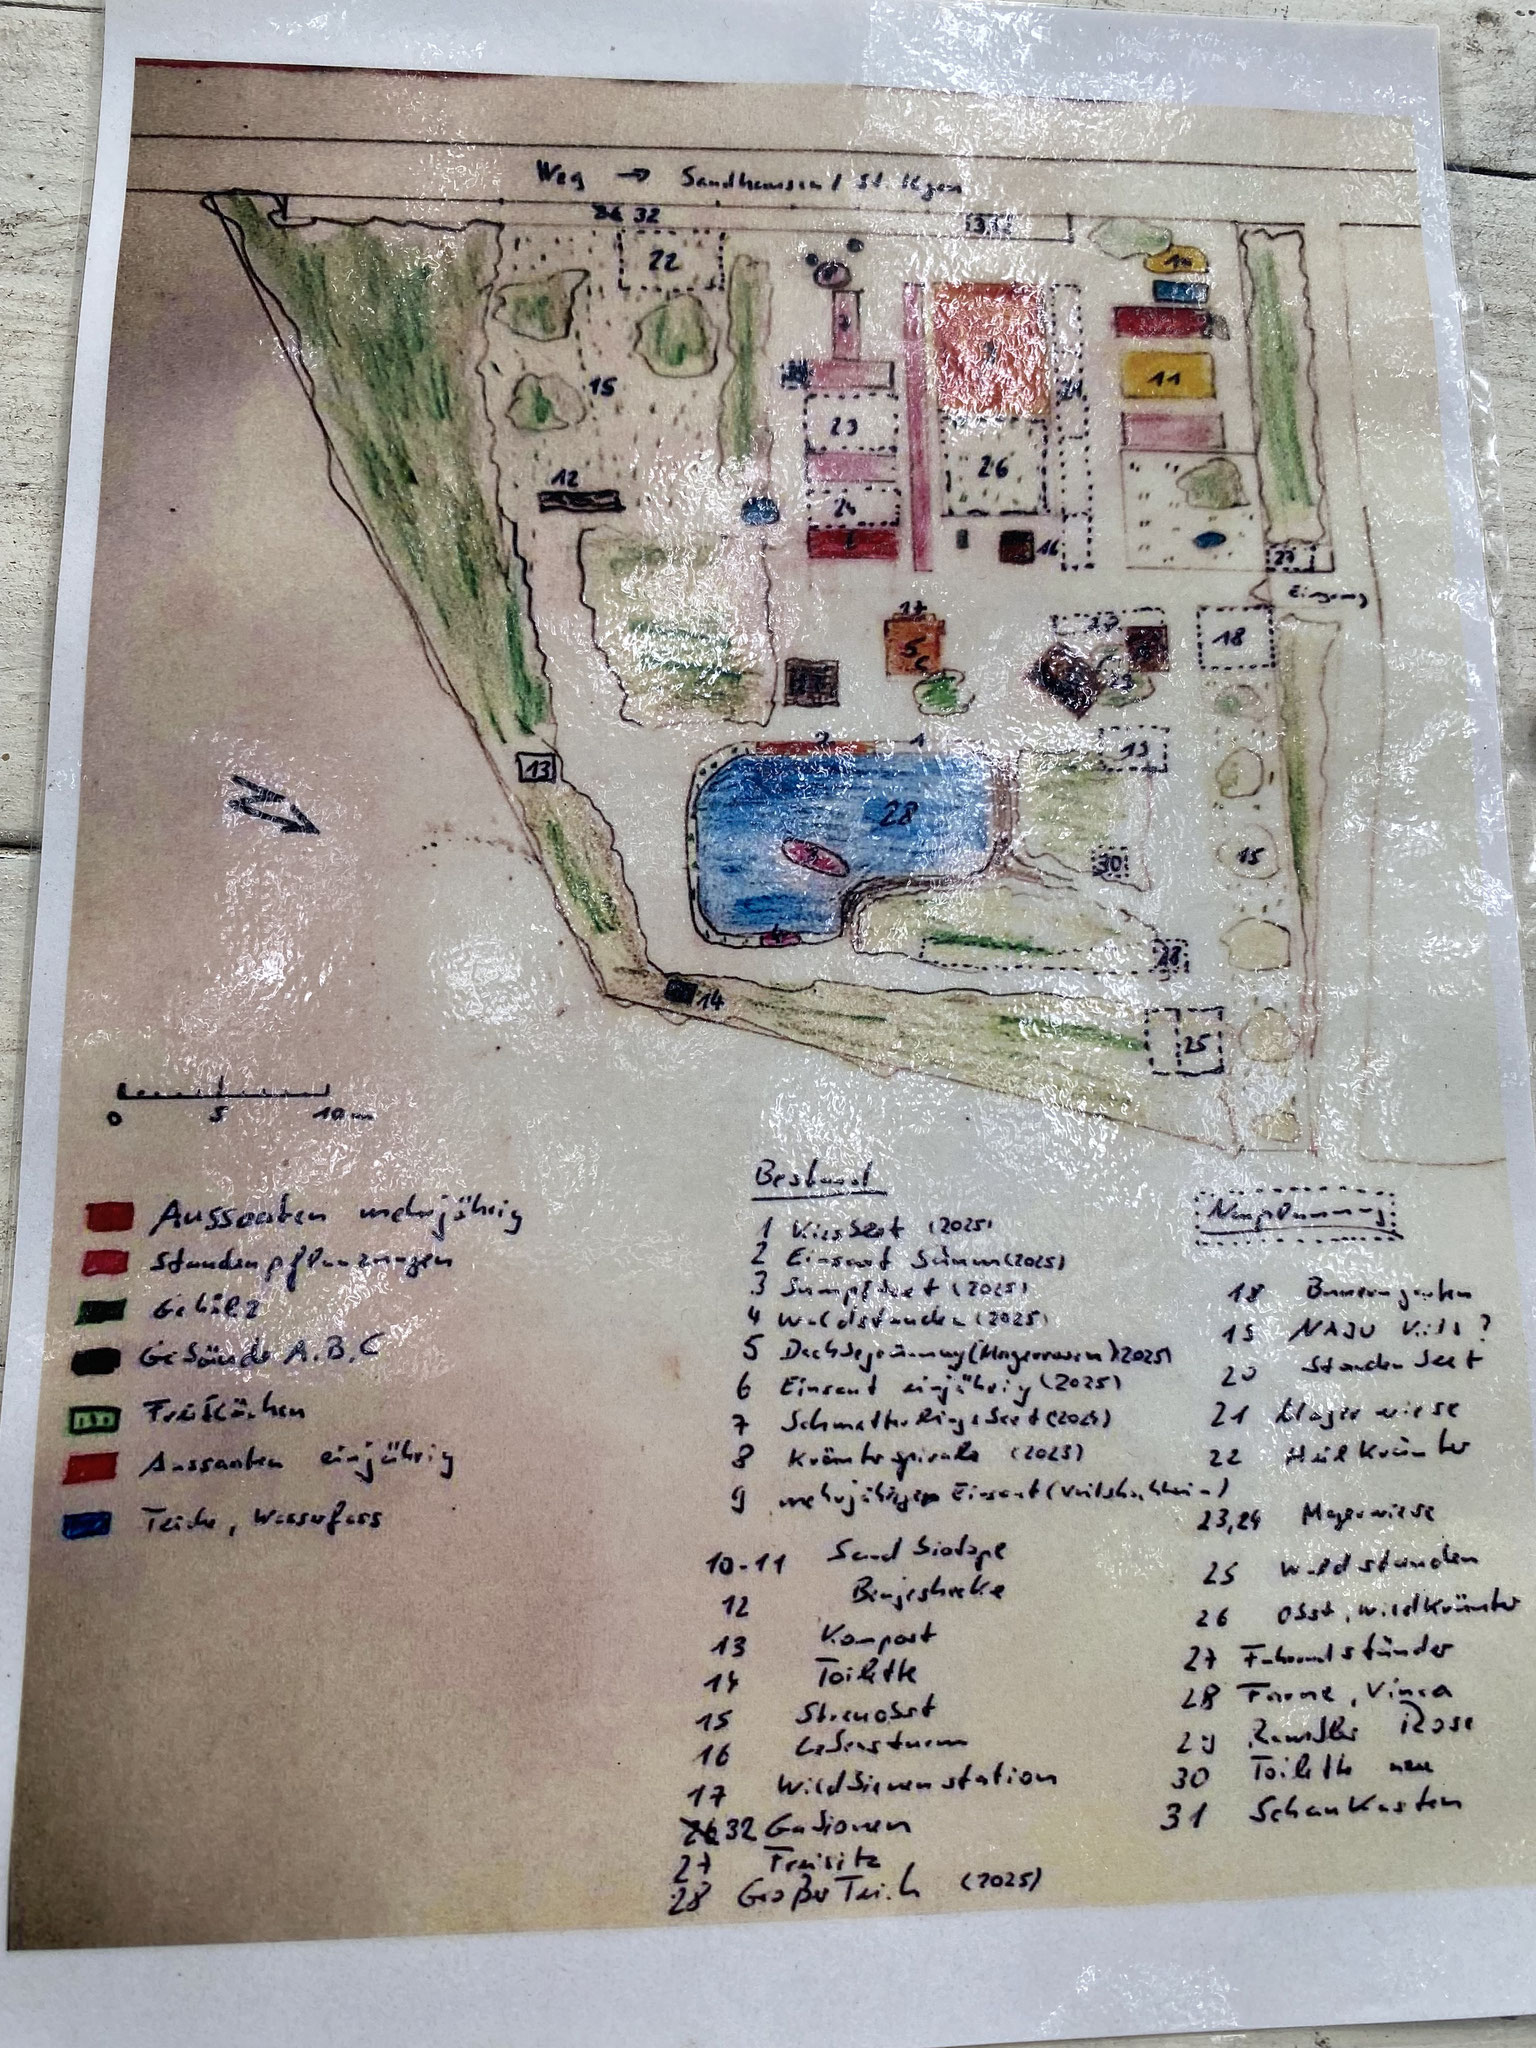 Weg → Sandhausen / St. Ilgen
32
22
15
12
23
24
26
11
16
27
Eingang
17
5
C
18
2
1
13
28
30
15
13
4
14
25
0 5 10 m
Aussaaten mehrjährig
Staudenpflanzungen
Gehölz
Gebäude A.B.C
Freiflächen
Aussaaten einjährig
Teiche, Wasserfass
Bestand
1 Kiesbeet (2025)
2 Einsaat Saum (2025)
3 Sumpfbeet (2025)
4 Waldstauden (2025)
5 Dachbegrünung (Magerrasen) 2025)
6 Einsaat einjährig (2025)
7 Schmetterlingsbeet (2024)
8 Kräuterspirale (2023)
9 mehrjährige Einsaat
10-11 Sandbiotope
12 Benjeshecke
13 Kompost
14 Toilette
15 Streuobst
16 Lebensturm
17 Wildbienenstation
32 Gabionen
27 Freisitz
28 Großer Teich (2025)
Neuplanung
18 Bauerngarten
19 NAJU Kids ?
20 Staudenbeet
21 Magerwiese
22 Heilkräuter
23,24 Magerwiese
25 Waldstauden
26 Obst, Wildkräuter
27 Fahrradständer
28 Farne, Vinca
29 Rambler Rose
30 Toilette neu
31 Schaukasten